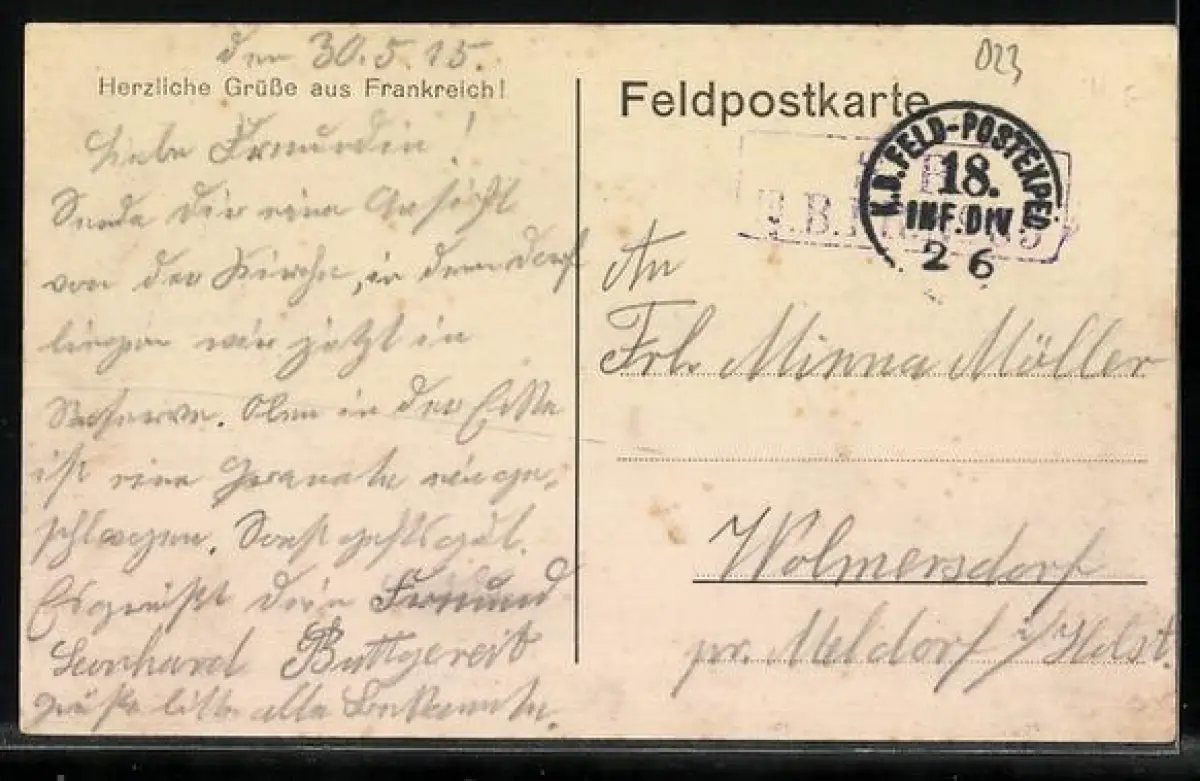 den 30.5.15.
Herzliche Grüße aus Frankreich!
Liebe Freundin!
Sende dir eine Ansicht
von der Kirche, in dem dorf
liegen wir jetzt in
Reserve. Oben in der
ist eine Granate einge-
schlagen. Sonst gehts gut.
Es grüßt dein Freund
Leonhard Buttgereit
grüße bitte alle Bekannte.
Feldpostkarte
023
K.D.FELD-POSTEXPED
18.
INF.DIV.
2 6
J.B.
An
Frl. Minna Möller
Wolmersdorf
pr. Meldorf i/Holst.